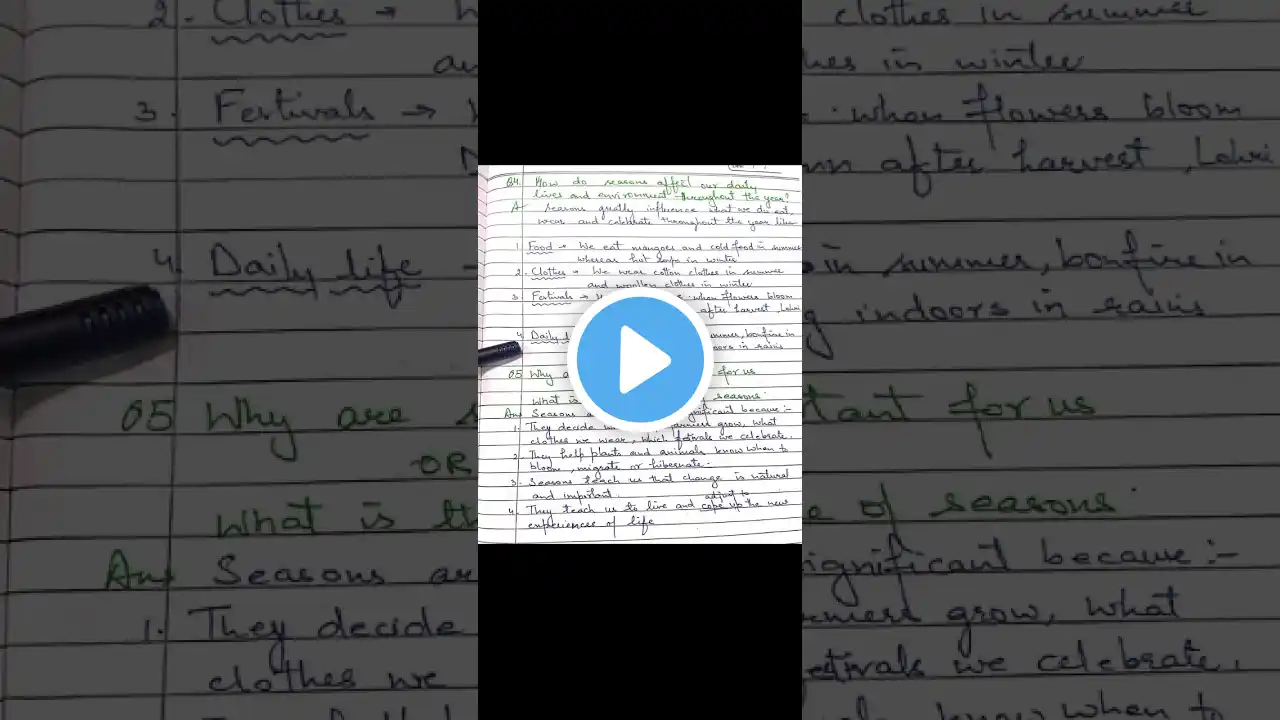 Q4. How do seasons affect our daily
lives and environment throughout the year?
A seasons greatly influence what we do, eat,
wear and celebrate throughout the year like
1. Food → We eat mangoes and cold food in summer
whereas hot soups in winter
2. Clothes → We wear cotton clothes in summer
and woollen clothes in winter
3. Festivals → when flowers bloom
after harvest, Lohri
4. Daily life summer, bonfire in
indoors in rains
Q5 Why are for us
OR
What is of seasons.
Ans Seasons are significant because :-
1. They decide farmers grow, what
clothes we wear, which festivals we celebrate.
2. They help plants and animals know when to
bloom, migrate or hibernate.
3. Seasons teach us that change is natural
and important.
adjust to
4. They teach us to live and cope up the new
experiences of life